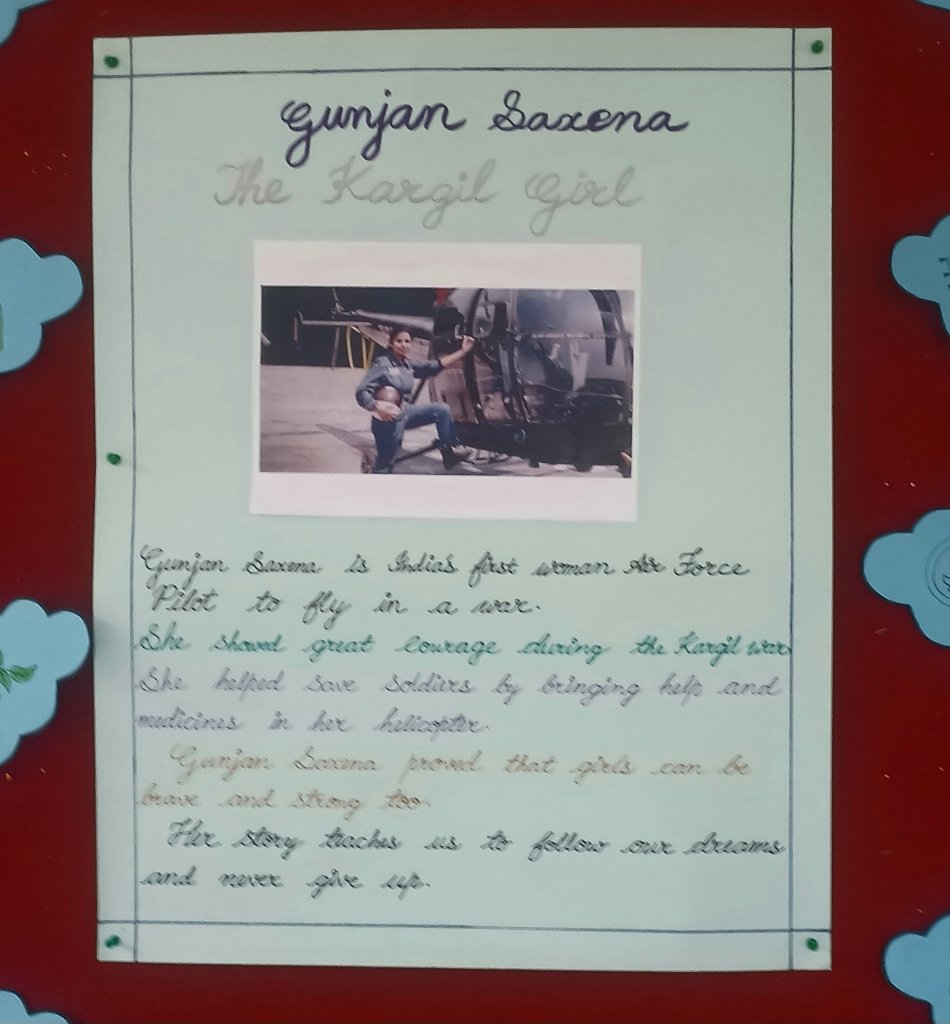 Gunjan Saxena
The Kargil Girl
Gunjan Saxena is India's first woman Air Force
Pilot to fly in a war.
She showed great courage during the Kargil war
She helped save soldiers by bringing help and
medicines in her helicopter.
Gunjan Saxena proved that girls can be
brave and strong too.
Her story teaches us to follow our dreams
and never give up.